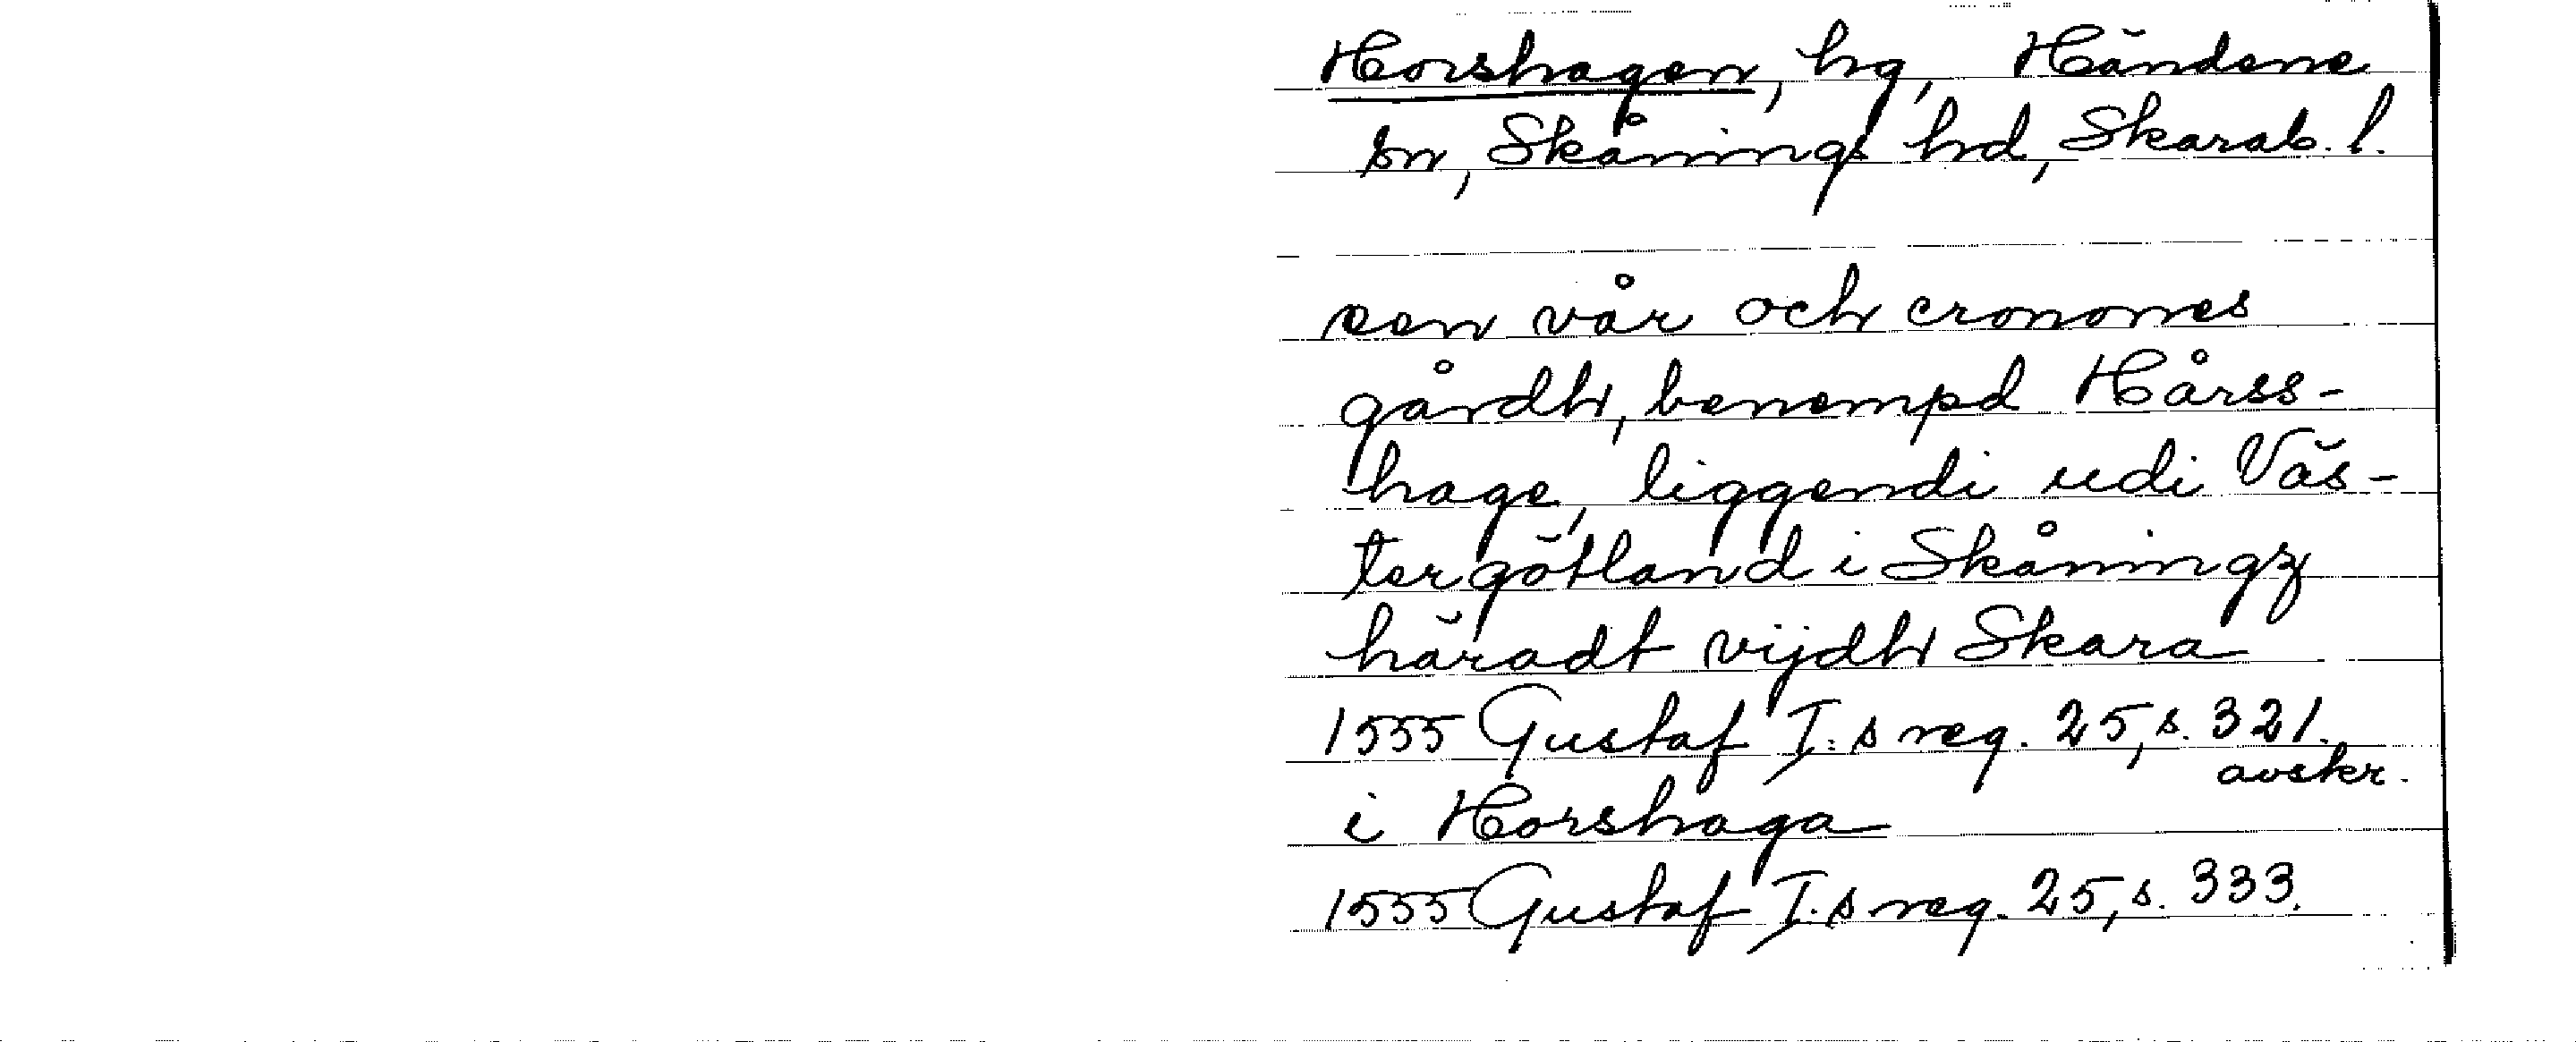 Horshagen, hg, Händene
sn, Skånings hd, Skarab. l.
een vår och cronones
gårdh, benempd Hårss-
hage, liggendi udi Väs-
tergötland i Skåningz
häradt vijdh Skara
1555 Gustaf I:s reg. 25, s. 321.
avskr.
i Horshaga
1555 Gustaf I:s reg. 25, s. 333.